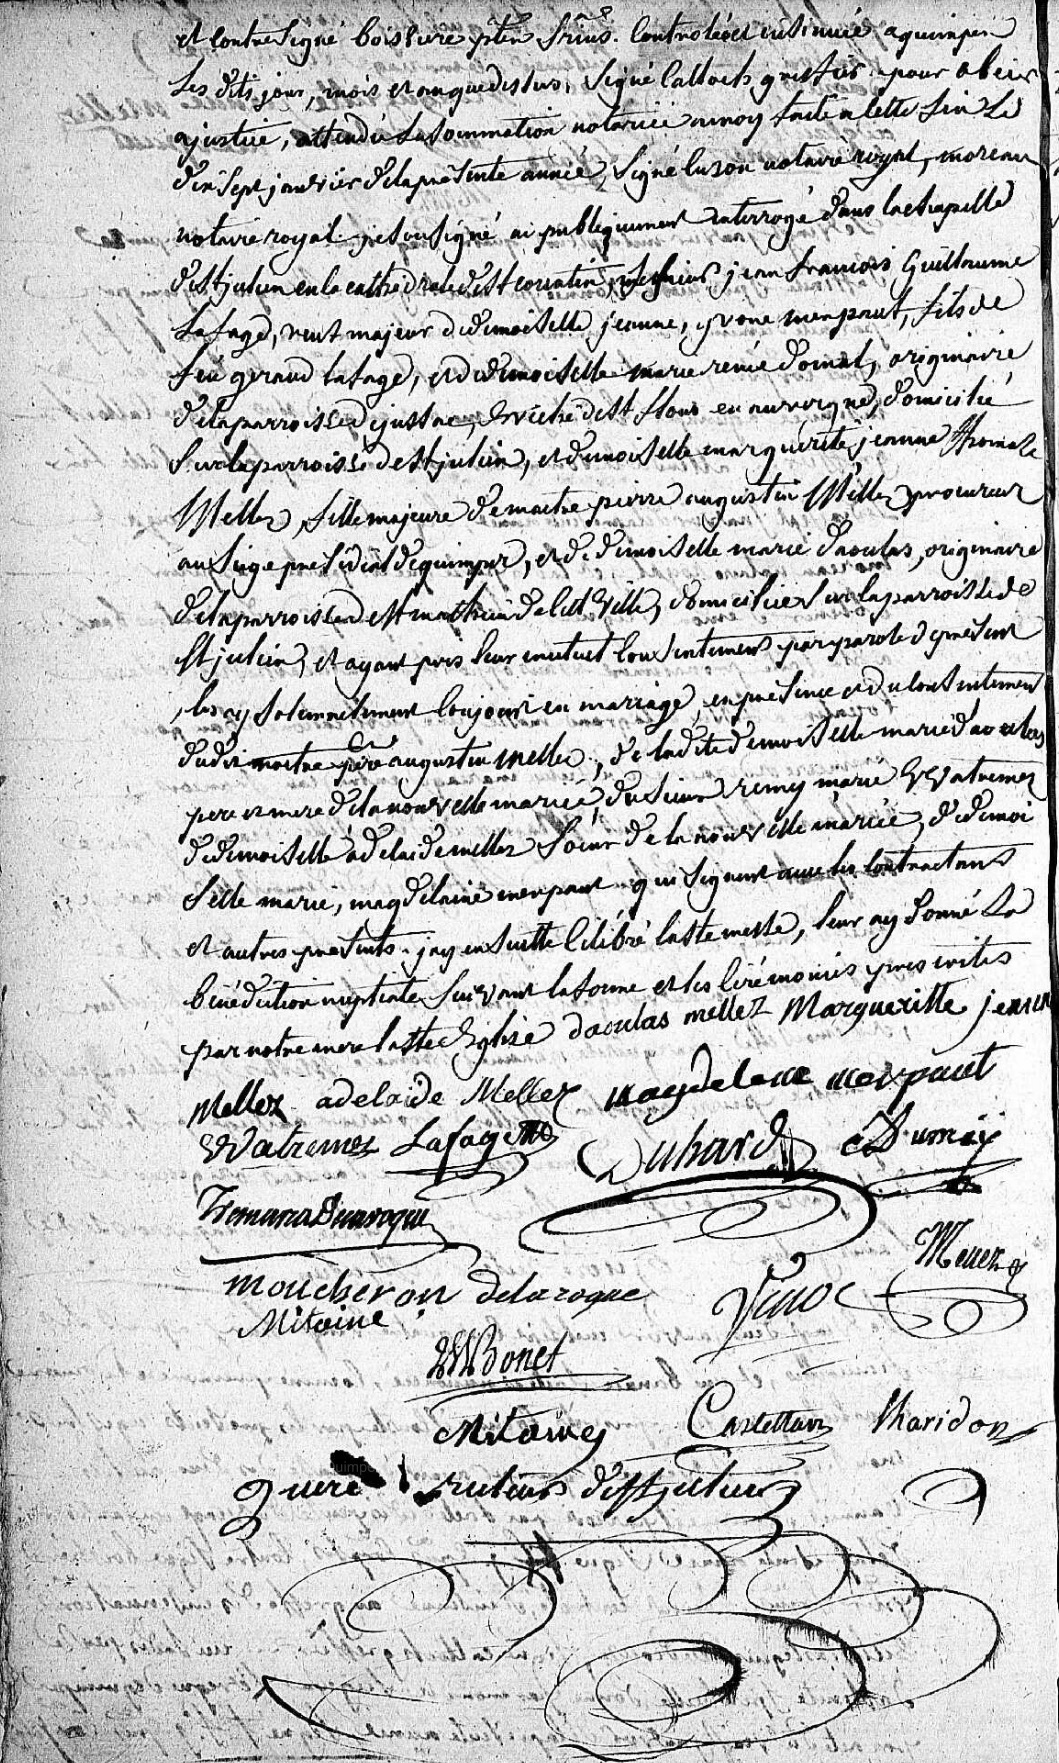 et contresigné boissiere ptre controlé et insinué a quimper
les dits jour, mois et an que dessus, signé greffier pour obeir
a justice, attendu la sommation notariée a moy faite a cette fin le
dix sept janvier de la presente année, signé luzon notaire royal, moreau
notaire royal. je soussigné ai publiquement interrogé dans la chapelle
de st julien en la cathedrale de st corentin, jean francois Guillaume
Lafage, veuf majeur de demoiselle jeanne, yvone morpaut, fils de
feu geraud lafage, et de demoiselle marie renée originaire
de la parroisse de jussac, Eveché de st flour en auvergne, domicilié
sur la parroisse de st julien, et demoiselle marguerite, jeanne Thomase
Mellez, fille majeure de maitre pierre augustin Mellez procureur
au siege presidial de quimper, et de demoiselle marie daoulas, originaire
de la parroisse de st mathieu de cette ville, domiciliée sur la parroisse de
st julien, et ayant pris leur mutuel consentement par parole de present
les ay solemnellement conjoint en mariage, en presence et du consentement
dudit maitre pre augustin mellez, de ladite demoiselle marie daoulas
pere et mere de la nouvelle mariée, du sieur remy marie Watremez
de demoiselle adelaide mellez soeur de la nouvelle mariée, de demoi
selle marie, magdelaine morpaut qui signent avec les contractans
et autres presents. j'ay ensuitte célébré la ste messe, leur ay donné la
bénédiction nuptiale suivant la forme et les cérémonies prescrites
par notre mere la ste Eglise daoulas mellez Margueritte jeanne
Mellez adelaide Mellez magdelene morpaut
Watremez Lafage Duhard Dumay
moucheron delaroque
Mitaine
Bonet
Mitaine Castellan Maridon
Queré recteur de st julien